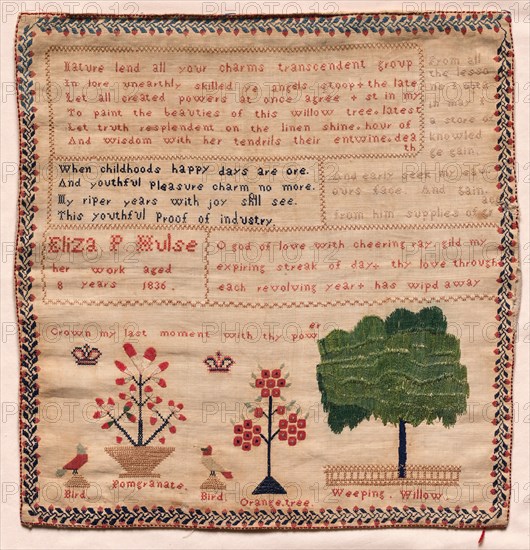 Nature lend all your charms transcendent group
In lore unearthly skilled ye angels stoop + the late
Let all created powers at once agree + st in my
To paint the beauties of this willow tree. latest
Let truth resplendent on the linen shine. hour of
And wisdom with her tendrils their entwine. dea
th
From all
the lesso
in may
a store o
knowled
ge gain.
When childhoods happy days are ore.
And youthful pleasure charm no more.
My riper years with joy shll see.
This youthful Proof of industry
And early
ours And gain
from him supplies of
Eliza P Hulse
her work aged
8 years 1836.
O god of lowe with cheering ray. gild my
expiring streak of day. thy love through
each revolving year + has wipd away
Crown my last moment with thy power
Bird. Pomgranate. Bird. Orange.tree. Weeping. Willow.